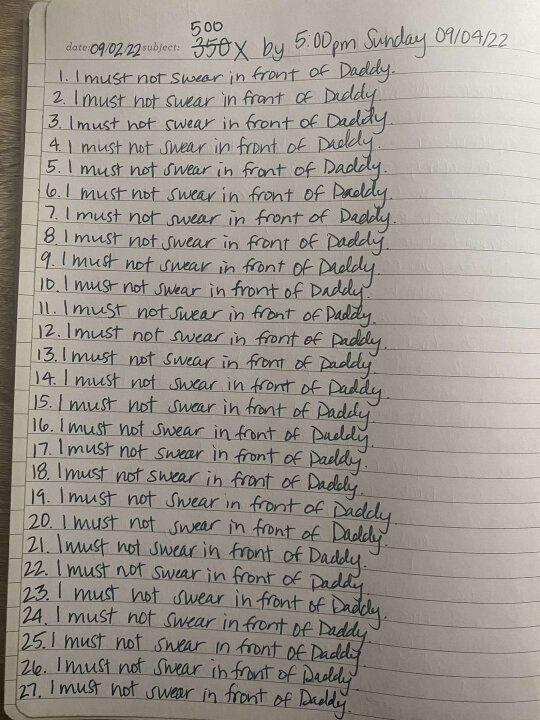 500
date: 09/02/22 subject: 350 X by 5:00pm Sunday 09/04/22
1. I must not swear in front of Daddy.
2. I must not swear in front of Daddy.
3. I must not swear in front of Daddy.
4. I must not swear in front of Daddy.
5. I must not swear in front of Daddy.
6. I must not swear in front of Daddy.
7. I must not swear in front of Daddy.
8. I must not swear in front of Daddy.
9. I must not swear in front of Daddy.
10. I must not swear in front of Daddy.
11. I must not swear in front of Daddy.
12. I must not swear in front of Daddy.
13. I must not swear in front of Daddy.
14. I must not swear in front of Daddy.
15. I must not swear in front of Daddy.
16. I must not swear in front of Daddy.
17. I must not swear in front of Daddy.
18. I must not swear in front of Daddy.
19. I must not swear in front of Daddy.
20. I must not swear in front of Daddy.
21. I must not swear in front of Daddy.
22. I must not swear in front of Daddy
23. I must not swear in front of Daddy.
24. I must not swear in front of Daddy
25. I must not swear in front of Daddy.
26. I must not swear in front of Daddy.
27. I must not swear in front of Daddy.